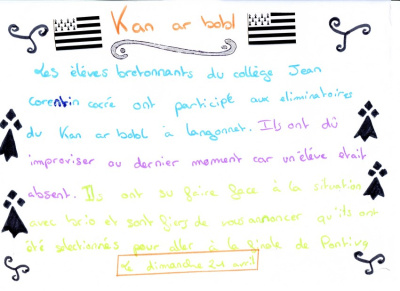 Kan ar bobl
Les élèves bretonnants du collège Jean
corentin carré ont participé aux eliminatoires
du Kan ar bobl à langonnet. Ils ont dû
improviser au dernier moment car un élève était
absent. Ils ont su faire face à la situation
avec brio et sont fiers de vous annoncer qu'ils ont
été sélectionnés pour aller à la finale de Pontivy
Le dimanche 21 avril